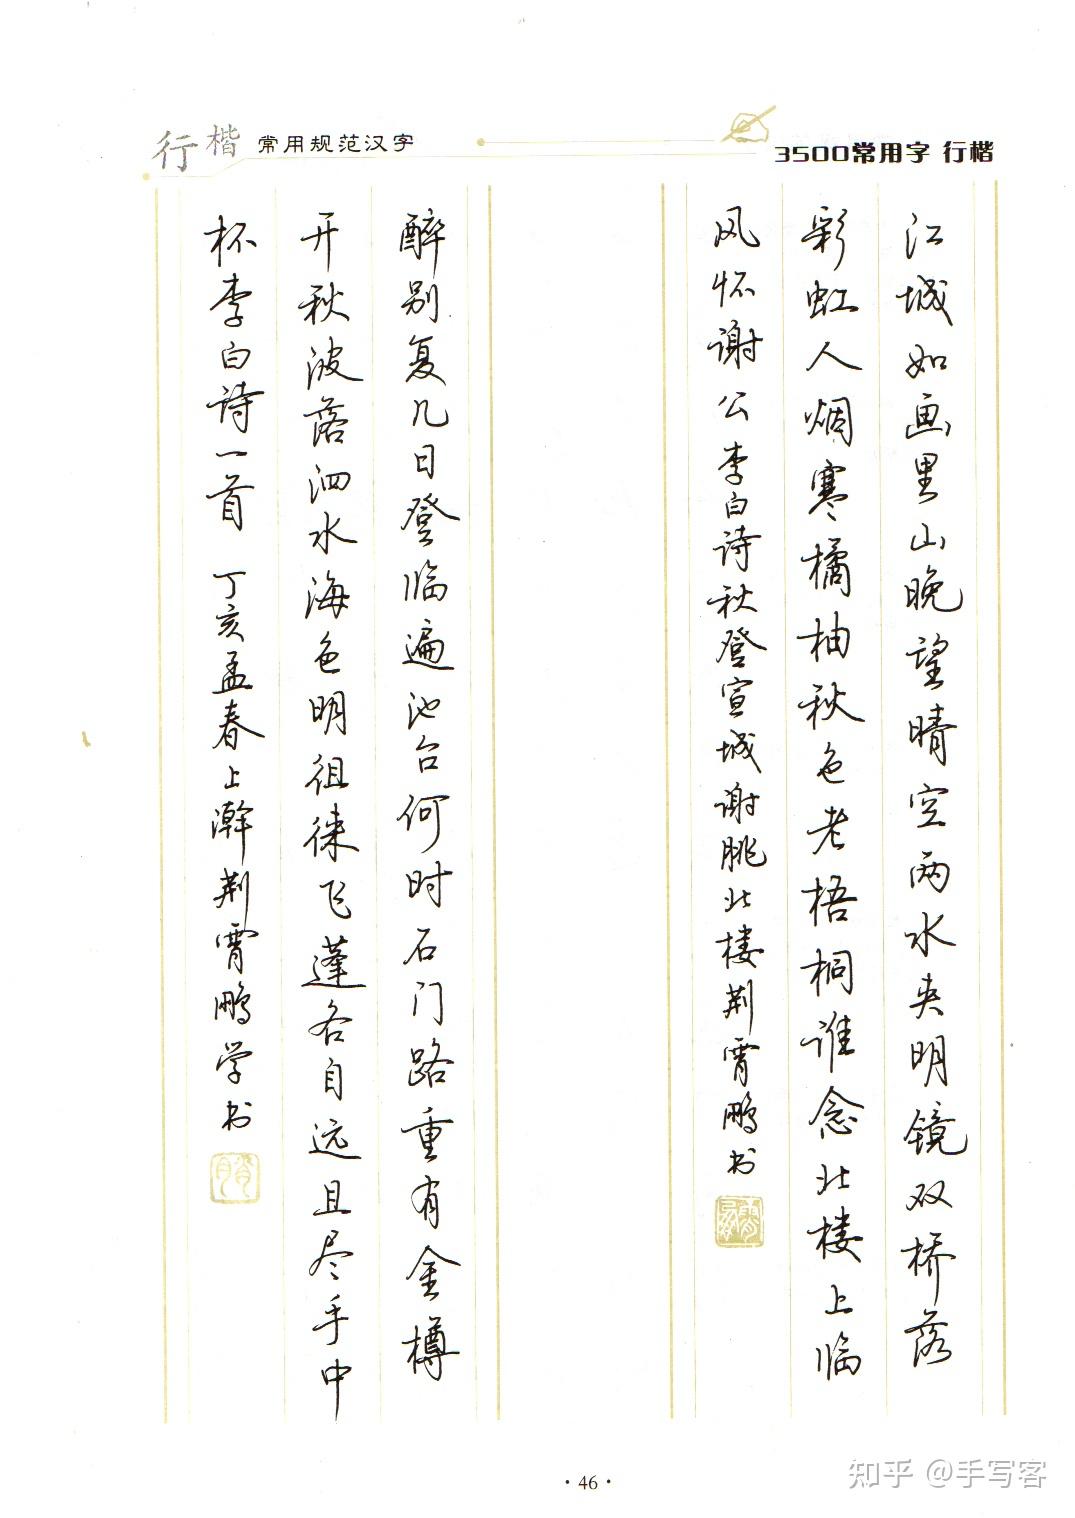 行楷 常用规范汉字
3500常用字 行楷
江城如画里山晚望晴空两水夹明镜双桥落
彩虹人烟寒橘柚秋色老梧桐谁念北楼上临
风怀谢公李白诗秋登宣城谢朓北楼荆霄鹏书
醉别复几日登临遍池台何时石门路重有金樽
开秋波落泗水海色明徂徕飞蓬各自远且尽手中
杯李白诗一首 丁亥孟春上澣荆霄鹏学书
·46·
知乎 @手写客